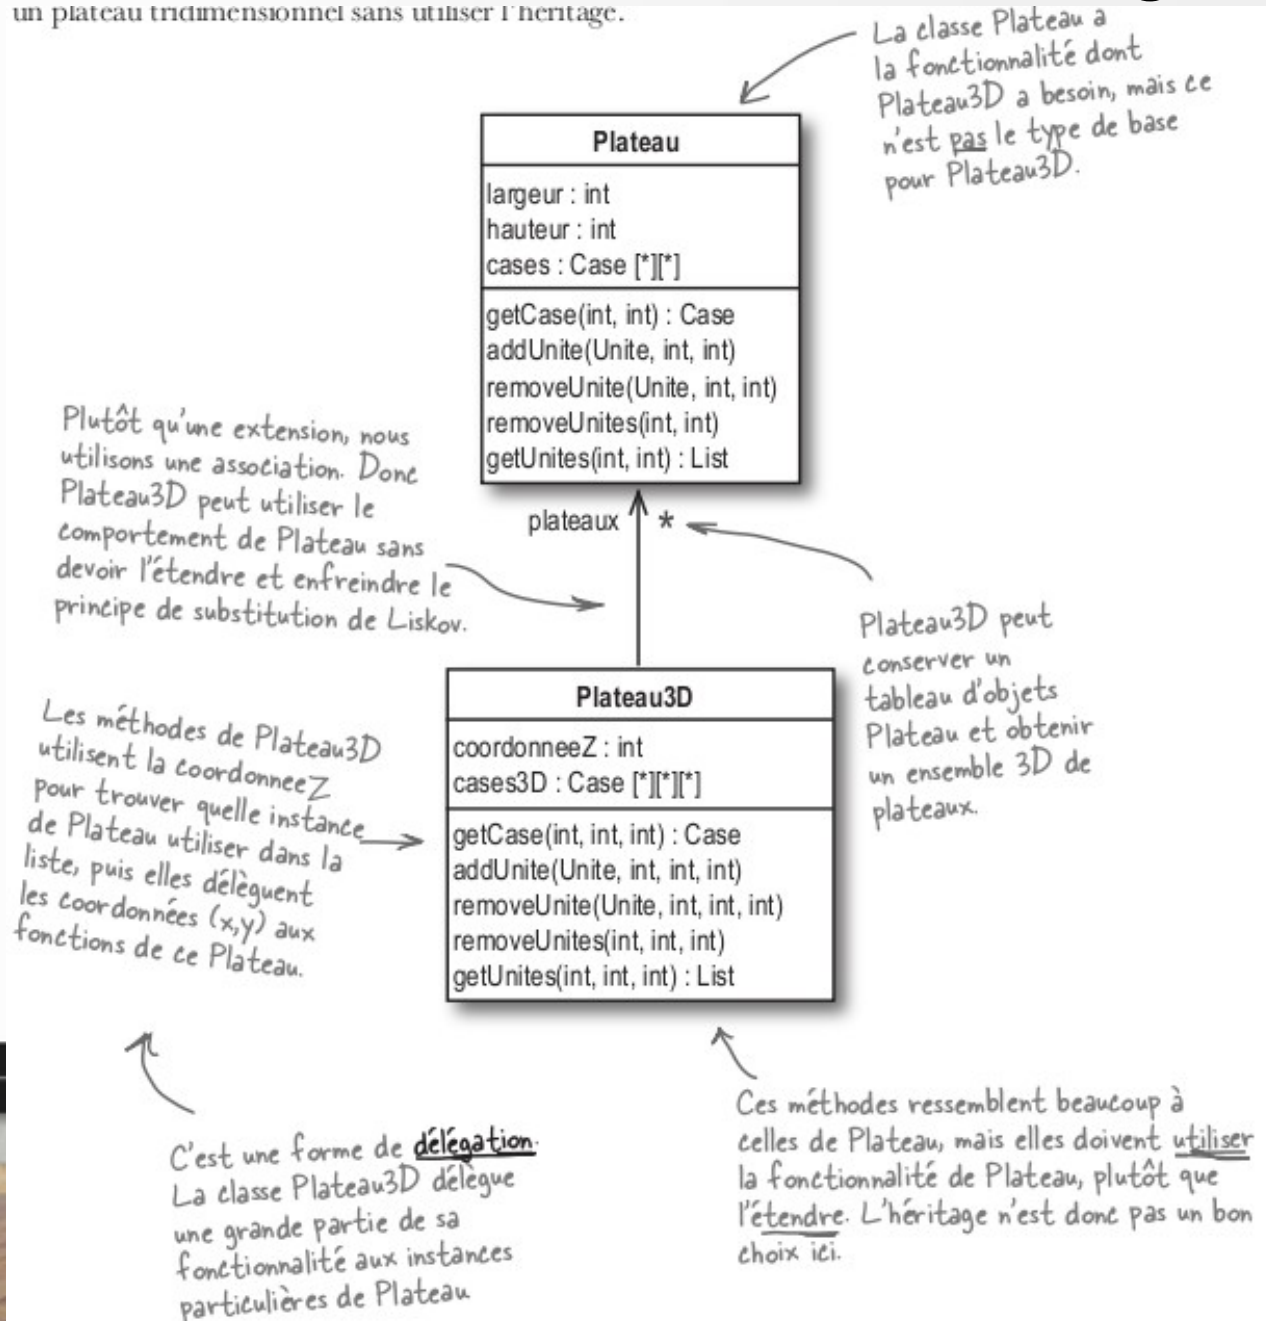 un plateau tridimensionnel sans utiliser l'héritage.
La classe Plateau a
la fonctionnalité dont
Plateau3D a besoin, mais ce
n'est pas le type de base
pour Plateau3D.
Plateau
largeur : int
hauteur : int
cases : Case [*][*]
getCase(int, int) : Case
addUnite(Unite, int, int)
removeUnite(Unite, int, int)
removeUnites(int, int)
getUnites(int, int) : List
Plutôt qu'une extension, nous
utilisons une association. Donc
Plateau3D peut utiliser le
comportement de Plateau sans
devoir l'étendre et enfreindre le
principe de substitution de Liskov.
plateaux *
Plateau3D peut
conserver un
tableau d'objets
Plateau et obtenir
un ensemble 3D de
plateaux.
Plateau3D
coordonneeZ : int
cases3D : Case [*][*][*]
getCase(int, int, int) : Case
addUnite(Unite, int, int, int)
removeUnite(Unite, int, int, int)
removeUnites(int, int, int)
getUnites(int, int, int) : List
Les méthodes de Plateau3D
utilisent la coordonneeZ
pour trouver quelle instance
de Plateau utiliser dans la
liste, puis elles délèguent
les coordonnées (x,y) aux
fonctions de ce Plateau.
C'est une forme de délégation.
La classe Plateau3D délègue
une grande partie de sa
fonctionnalité aux instances
particulières de Plateau
Ces méthodes ressemblent beaucoup à
celles de Plateau, mais elles doivent utiliser
la fonctionnalité de Plateau, plutôt que
l'étendre. L'héritage n'est donc pas un bon
choix ici.